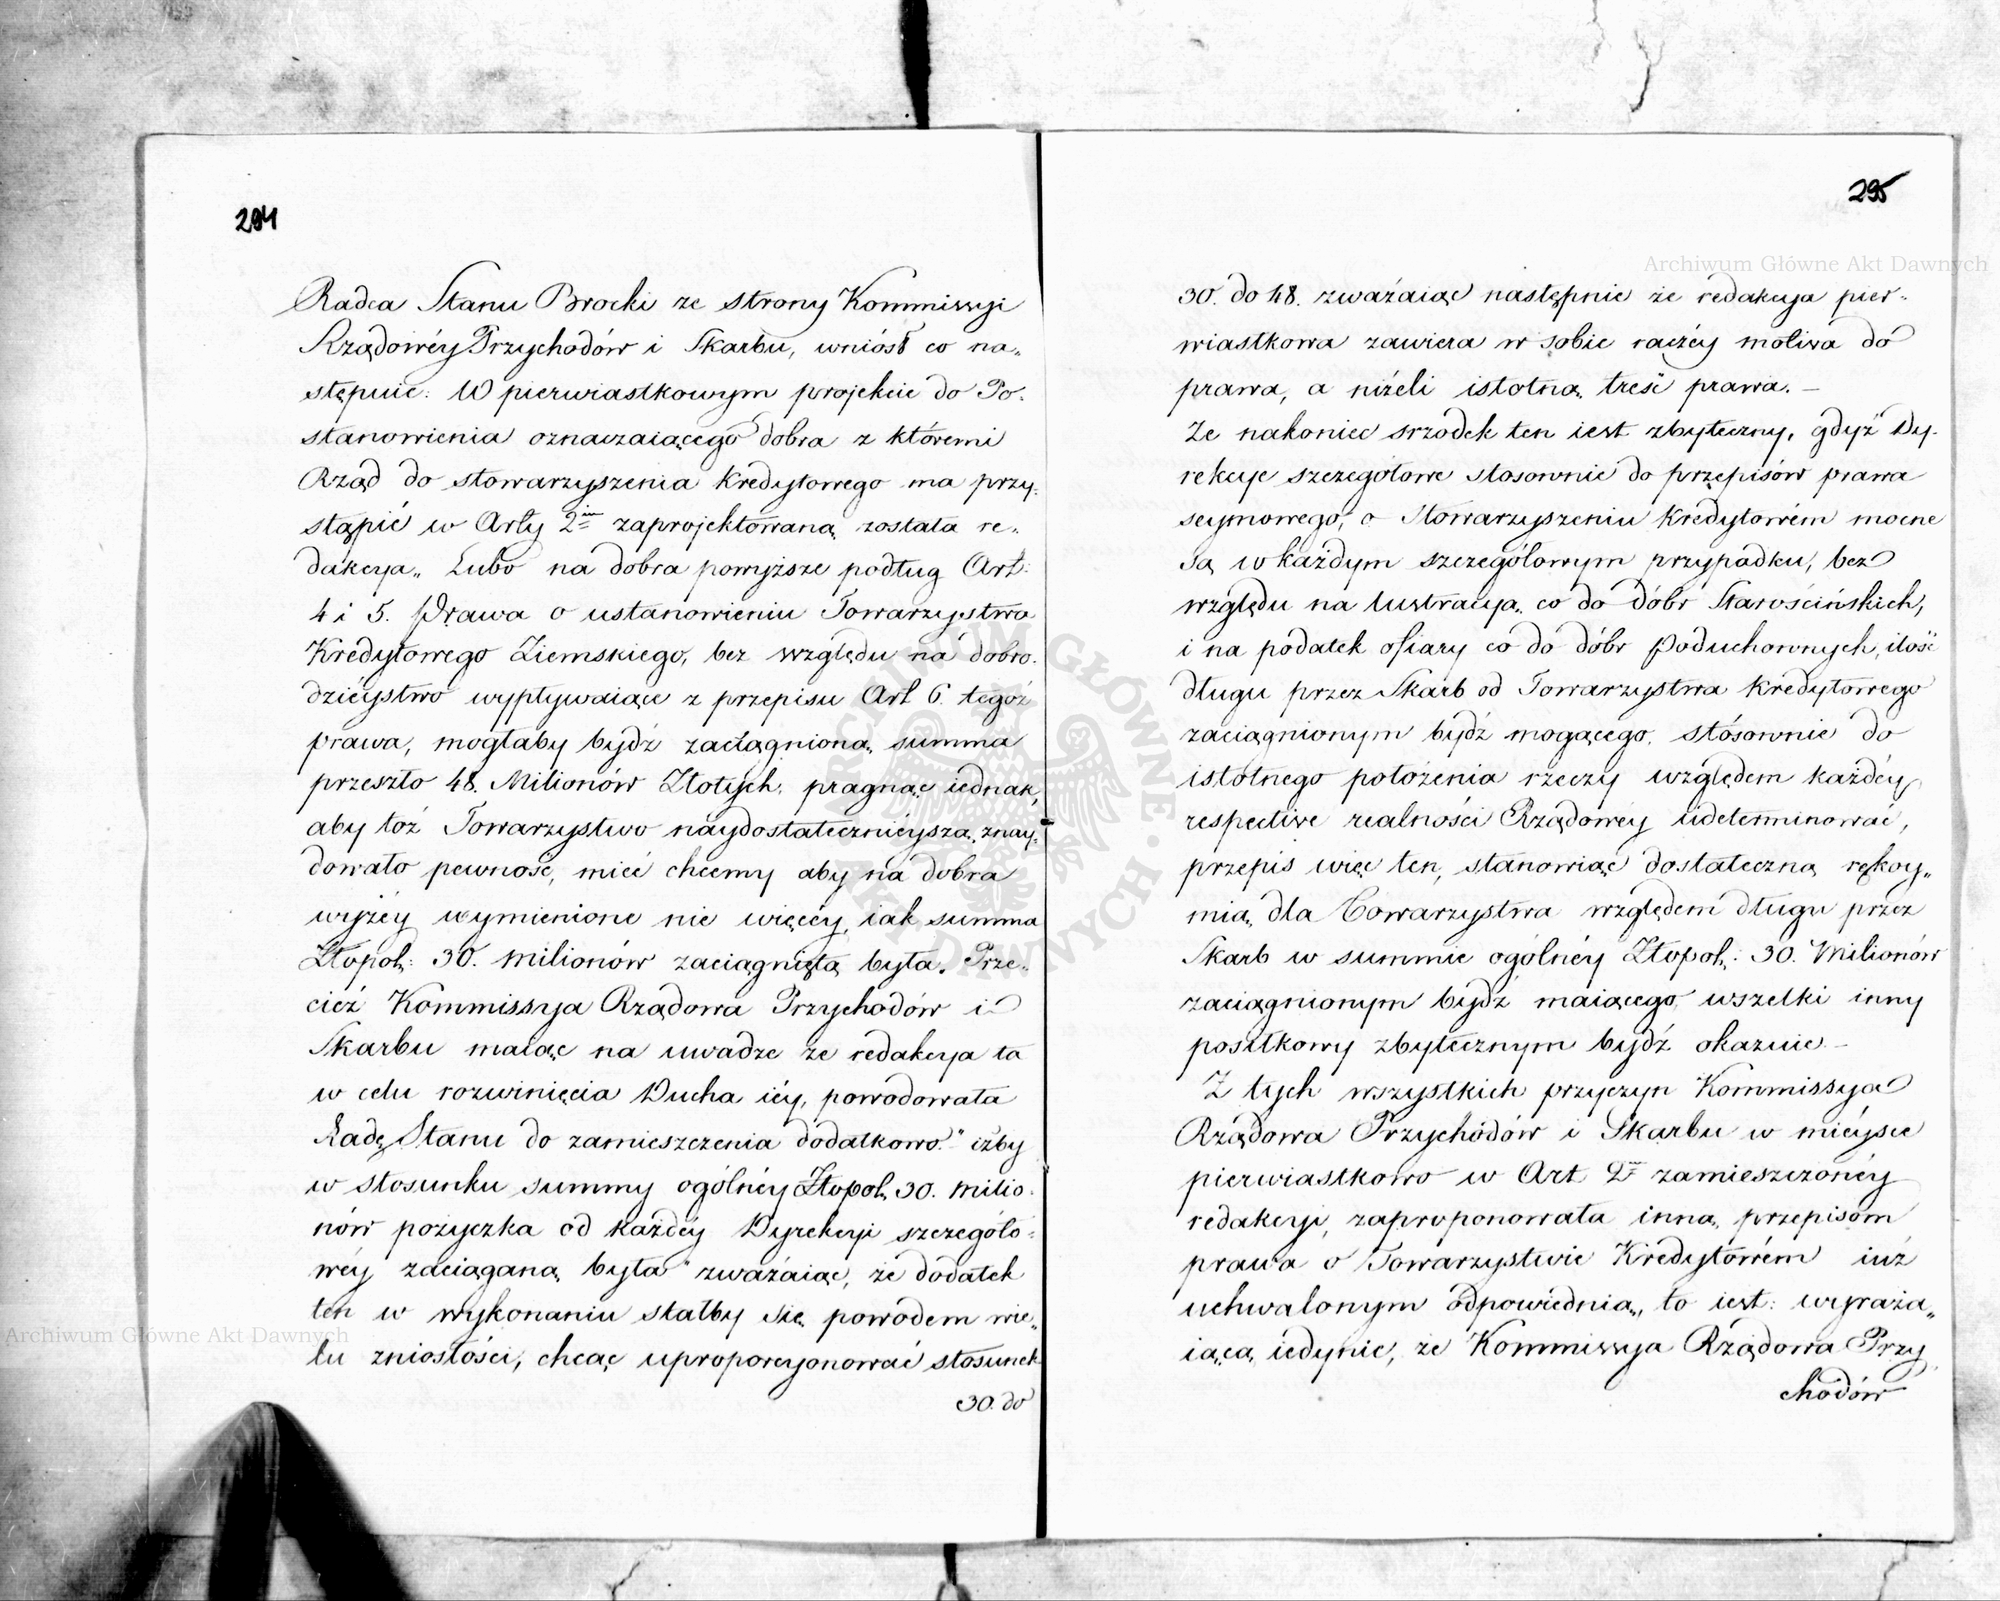 294
Radca Stanu Brocki ze strony Kommissyi
Rządowéy Przychodów i Skarbu, wniósł co na„
stępuie: W pierwiastkowym projekcie do Po:
stanowienia oznaczaiącego dobra z któremi
Rząd do stowarzyszenia kredytowego ma przy:
stąpić w Arty 2im zaprojektowaną została re„
dakcya„ Lubo na dobra powyższe podług Art:
4 i 5. Prawa o ustanowieniu Towarzystwa
Kredytowego Ziemskiego, bez względu na dobro:
dzieystwo wypływaiące z przepisu Art 6. tegoż
prawa, mogłaby bydź zaciągnioną summa
przeszło 48. Milionów Złotych, pragnąc iednak,
aby toż Towarzystwo naydostatecznieyszą znay:
dowało pewność, mieć chcemy aby na dobra
wyżéy wymienione nie więcéy, iak summa
Złopol: 30. Milionów zaciągniętą była. Prze:
cież Kommissya Rządowa Przychodów i
Skarbu maiąc na uwadze że redakcya ta
w celu rozwinięcia Ducha iéy, powodowała
Radę Stanu do zamieszczenia dodatkowo." iżby
w stosunku summy ogólnéy Złopol. 30. Milio:
nów pożyczka od każdéy Dyrekcyi szczegóło:
wéy zaciąganą była" zważaiąc, że dodatek
ten w wykonaniu stałby się powodem wie„
lu zniosłości, chcąc uproporcyonować stosunek
30. do
295
30. do 48. zważaiąc następnie że redakcya pier„
wiastkowa zawiera w sobie raczéy motiva do
prawa, a niżeli istotną treść prawa. —
Że nakoniec srzodek ten iest zbyteczny, gdyż Dy„
rekcye szczegółowe stosownie do przepisów prawa
seymowego, o Stowarzyszeniu Kredytowém mocne
są w każdym szczegółowym przypadku, bez
względu na lustracyą co do dóbr Starościńskich,
i na podatek ofiary co do dóbr Poduchownych, ilość
długu przez Skarb od Towarzystwa Kredytowego
zaciągnionym bydź mogącego, stósownie do
istotnego położenia rzeczy względem każdéy
respective realności Rządowéy udeterminować,
przepis więc ten, stanowiąc dostateczną rękoy„
mią dla Towarzystwa względem długu przez
Skarb w summie ogólnéy Złopol: 30. Milionów
zaciągnionym bydź maiącego, wszelki inny
posiłkowy zbytecznym bydź okazuie. —
Z tych wszystkich przyczyn Kommissya
Rządowa Przychodów i Skarbu w mieysce
pierwiastkowo w Art 2m zamieszczonéy
redakcyi, zaproponowała inną, przepisom
prawa o Towarzystwie Kredytowém iuż
uchwalonym odpowiednią, to iest: wyraża„
iącą iedynie, że Kommissya Rządowa Przy
chodów
Archiwum Główne Akt Dawnych
Archiwum Główne Akt Dawnych
ARCHIWUM GŁÓWNE AKT DAWNYCH